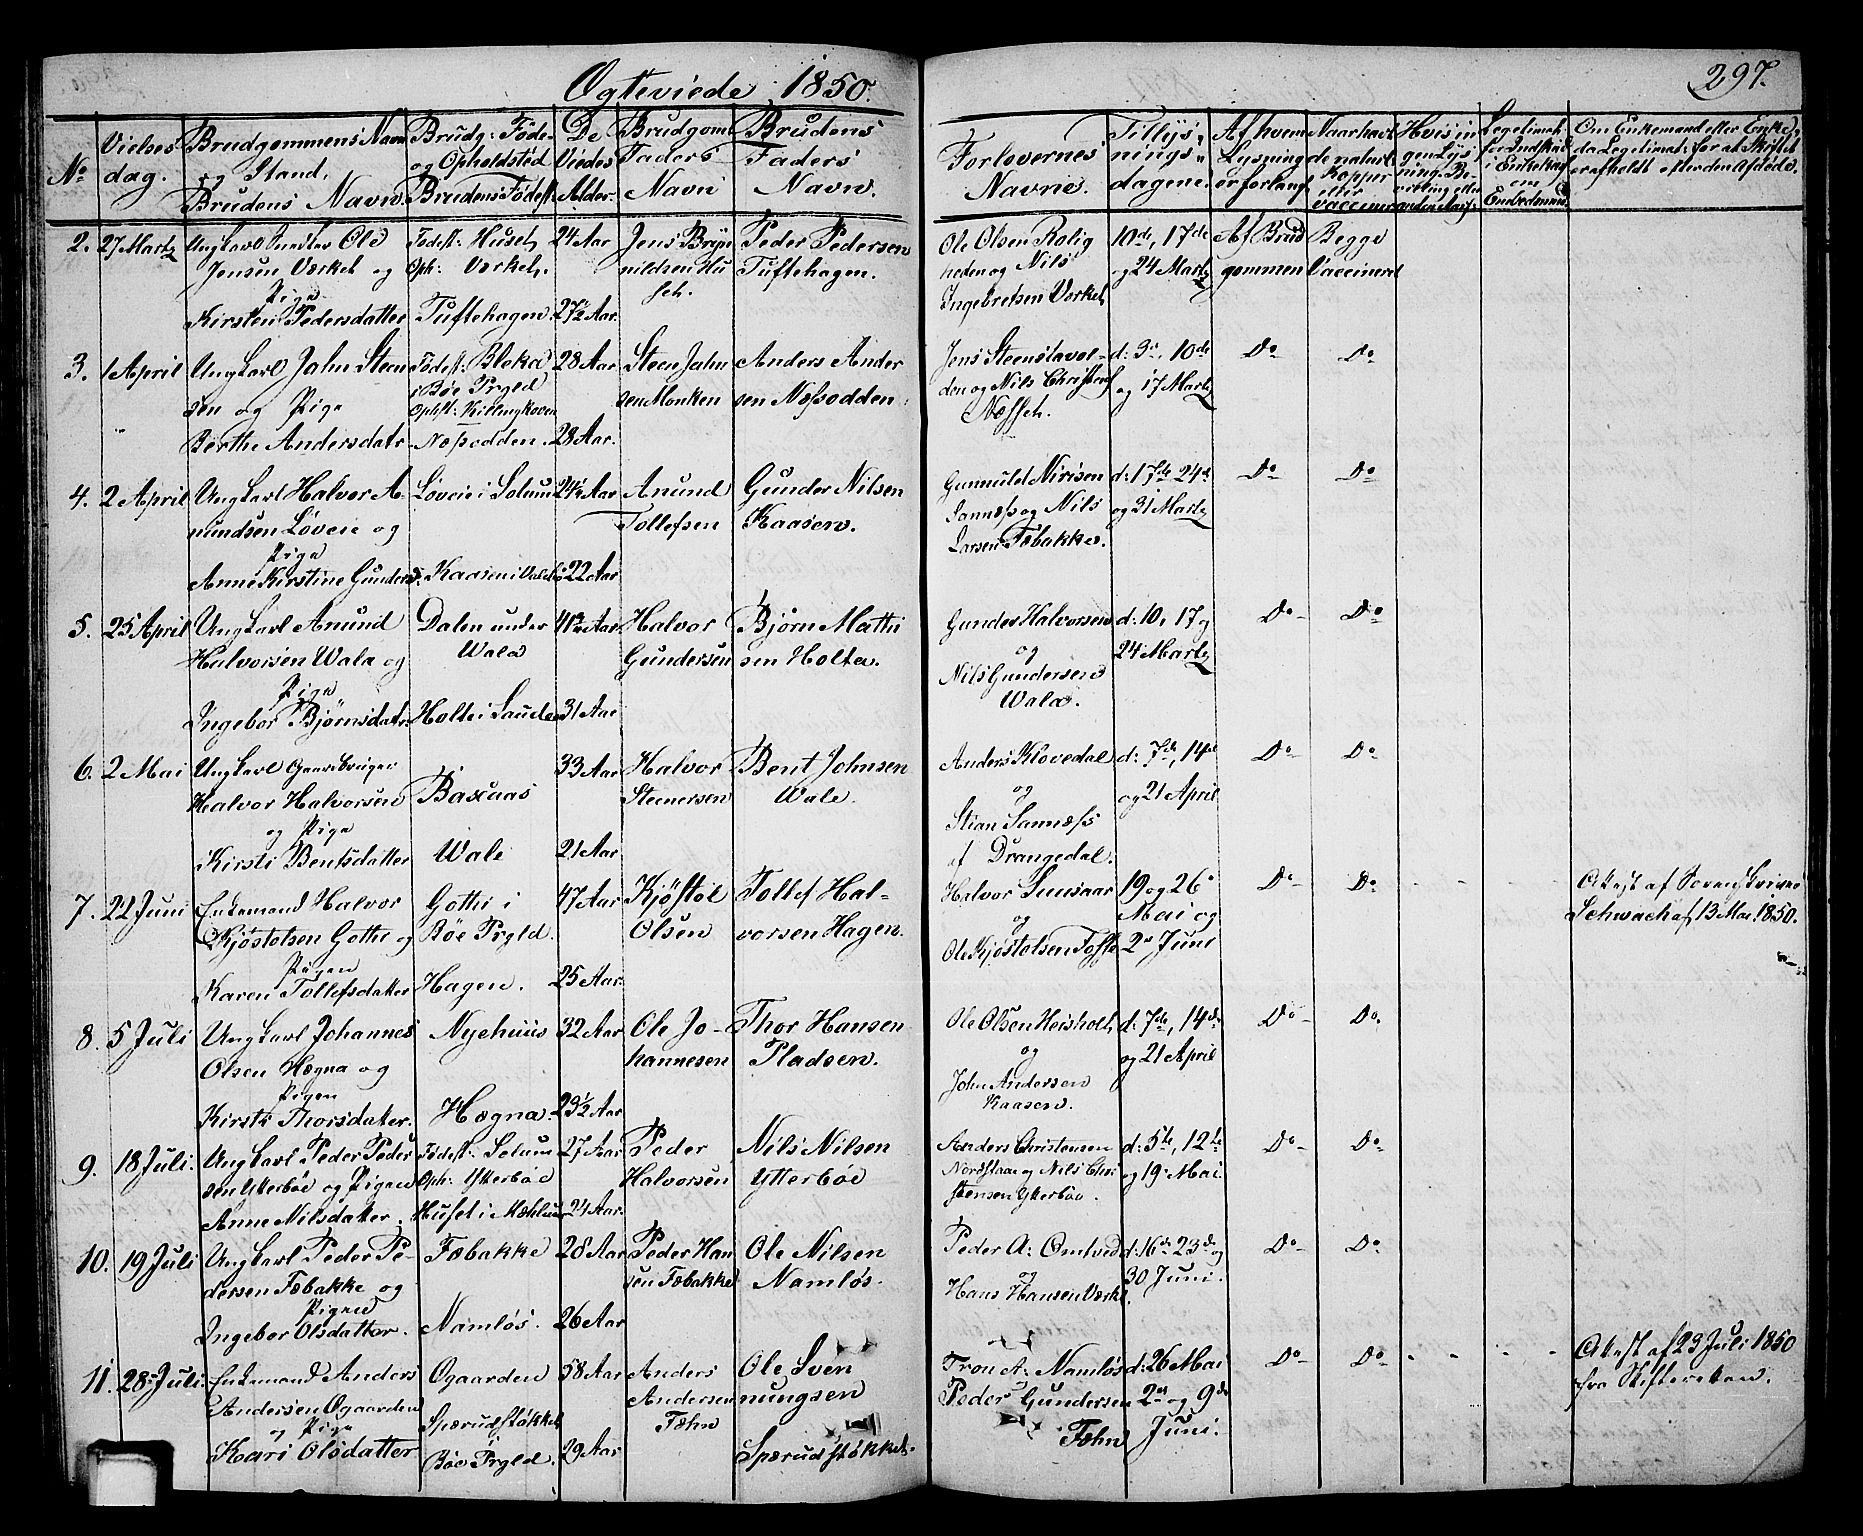 Ogteviede 1850.
297.
No
Vielses
dag.
Brudgommens Navn
og Stand,
Brudens Navn
Brudg: Føde-
og Opholdsted
Brudens Fødest:
De
Viedes
Alder.
Brudgoms
Faders
Navn
Brudens
Faders
Navn.
Forlovernes
Navne.
Tillys-
nings-
dagene.
Af hvem
Lysning
er forlangt
Naar havt
de naturl:
Kopper
eller
vaccineret
2. 27 Martz Ungkarl Ole
Jensen Værket og
Pige
Kirsten Pedersdatter
Fødest: Huset,
Oph: Værket.
Tuftehagen.
24 Aar
27½ Aar.
Jens Bryn
nildsen Hu
set.
Peder Pedersen
Tuftehagen.
Ole Olsen Rolig
heden og Nils
Ingebretsen Værket
10de, 17de
og 24 Martz
Af Brud
gommen
Begge
Vaccineret
3. 1 April Ungkarl Jahn Steen
sen og Pige
Berthe Andersdatr
Fødest: Bleka
i Bøe Prgld
Opst: Killingkoven
Næsodden.
28 Aar
28 Aar.
Steen Jahn
sen Monken
Anders Ander
sen Næsodden.
Jens Steenstavol-
den og Nils Christens
Næsset.
d: 3die, 10de
og 17 Martz
Do Do
4. 2 April Ungkarl Halvor A-
nundsen Løveie og
Pige
Anne Kirstine Gunders
Løveie i Solum
Kaasen i Vale
24½ Aar
22 Aar
Anund
Tollefsen
Gunder Nilsen
Kaasen.
Gunnuld Nirisen
Sannæs og Nils
Larsen Fæbakke.
d: 17de 24de
og 31 Martz
Do Do
5. 25 April Ungkarl Anund
Halvorsen Wala og
Pige
Ingebor Bjørnsdatr.
Dalen under
Wala
Holte i Saude
41½ Aar.
31 Aar
Halvor
Gundersen
Bjørn Mathi
sen Holte.
Gunder Halvorsen
og
Nils Gundersen
Wala.
d: 10, 17 og
24 Martz
Do Do
6. 2 Mai Ungkarl Gaardbruger
Halvor Halvorsen
og Pige
Kirsti Bentsdatter
Baxaas
Wale
33 Aar
21 Aar.
Halvor
Steenersen
Bent Johnsen
Wale.
Anders Klovedal
og
Stian Sannæss
af Drangedal.
d: 7de, 14de
og 21 April
Do Do
7. 22 Juni Enkemand Halvor
Kjøstolsen Gothe og
Pigen
Karen Tollefsdatter
Gothe i
Bøe Prgld.
Hagen.
47 Aar
25 Aar.
Kjøstol
Olsen
Tollef Hal-
vorsen Hagen.
Halvor Sunsaar
og
Ole Kjøstolsen Tofte
19 og 26
Mai og
2n Juni
Do Do
Attest af Sorenskriver
Schwach af 13 Mai 1850.
8. 5 Juli Ungkarl Johannes
Olsen Hægna og
Pigen
Kirsti Thorsdater.
Nyehuus
Hægna.
32 Aar
23½ Aar
Ole Jo-
hannesen
Thor Hansen
Pladsen.
Ole Olsen Heisholt
og
John Andersen
Kaasen.
d: 7de, 14de
og 21 April
Do Do.
9. 18 Juli. Ungkarl Peder Peder
sen Ytterbøe og Pigen
Anne Nilsdatter.
Fødest: Solum
Oph: Ytterbøe
Huset i Mælum
27 Aar
24 Aar.
Peder
Halvorsen
Nils Nilsen
Ytterbøe
Anders Christensen
Nordstaa og Nils Chri
stensen Ytterbøe.
d: 5te, 12te
og 19 Mai.
Do Do
10. 19 Juli Ungkarl Peder Pe-
dersen Fæbakke og
Pigen
Ingebor Olsdatter.
Fæbakke
Namløs.
28 Aar
26 Aar
Peder Han
sen Fæbakke
Ole Nilsen
Namløs.
Peder A: Omtved
og
Hans Hansen Værket.
d: 16de 23de og
30 Juni.
Do Do
11. 28 Juli Enkemand Anders
Andersen Øgaarden
og Pige
Kari Olsdatter
Øgaarden
Spærudstøkket
Bøe Prgld.
58 Aar
29 Aar
Anders
Andersen
Fæhn
Ole Sven
nungsen
Spærudstøkket.
Tron A: Namløs
Peder Gundersen
Fæhn
d: 26 Mai
2den og 9de
Juni.
Do Do
Attest af 23 Juli 1850
fra Skifteretten.